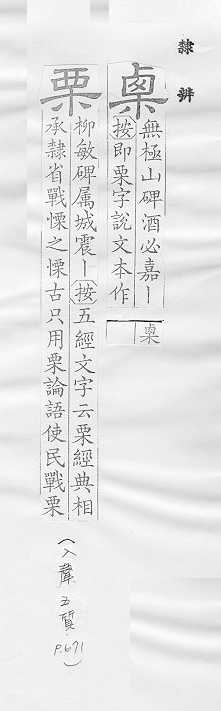 隸辨
㮚
無極山碑酒必嘉丨
按即栗字說文本作
㮚
栗
柳敏碑属城震丨按五經文字云栗經典相
承隸省戰慄之慄古只用栗論語使民戰栗
(入聲五質 P.671)